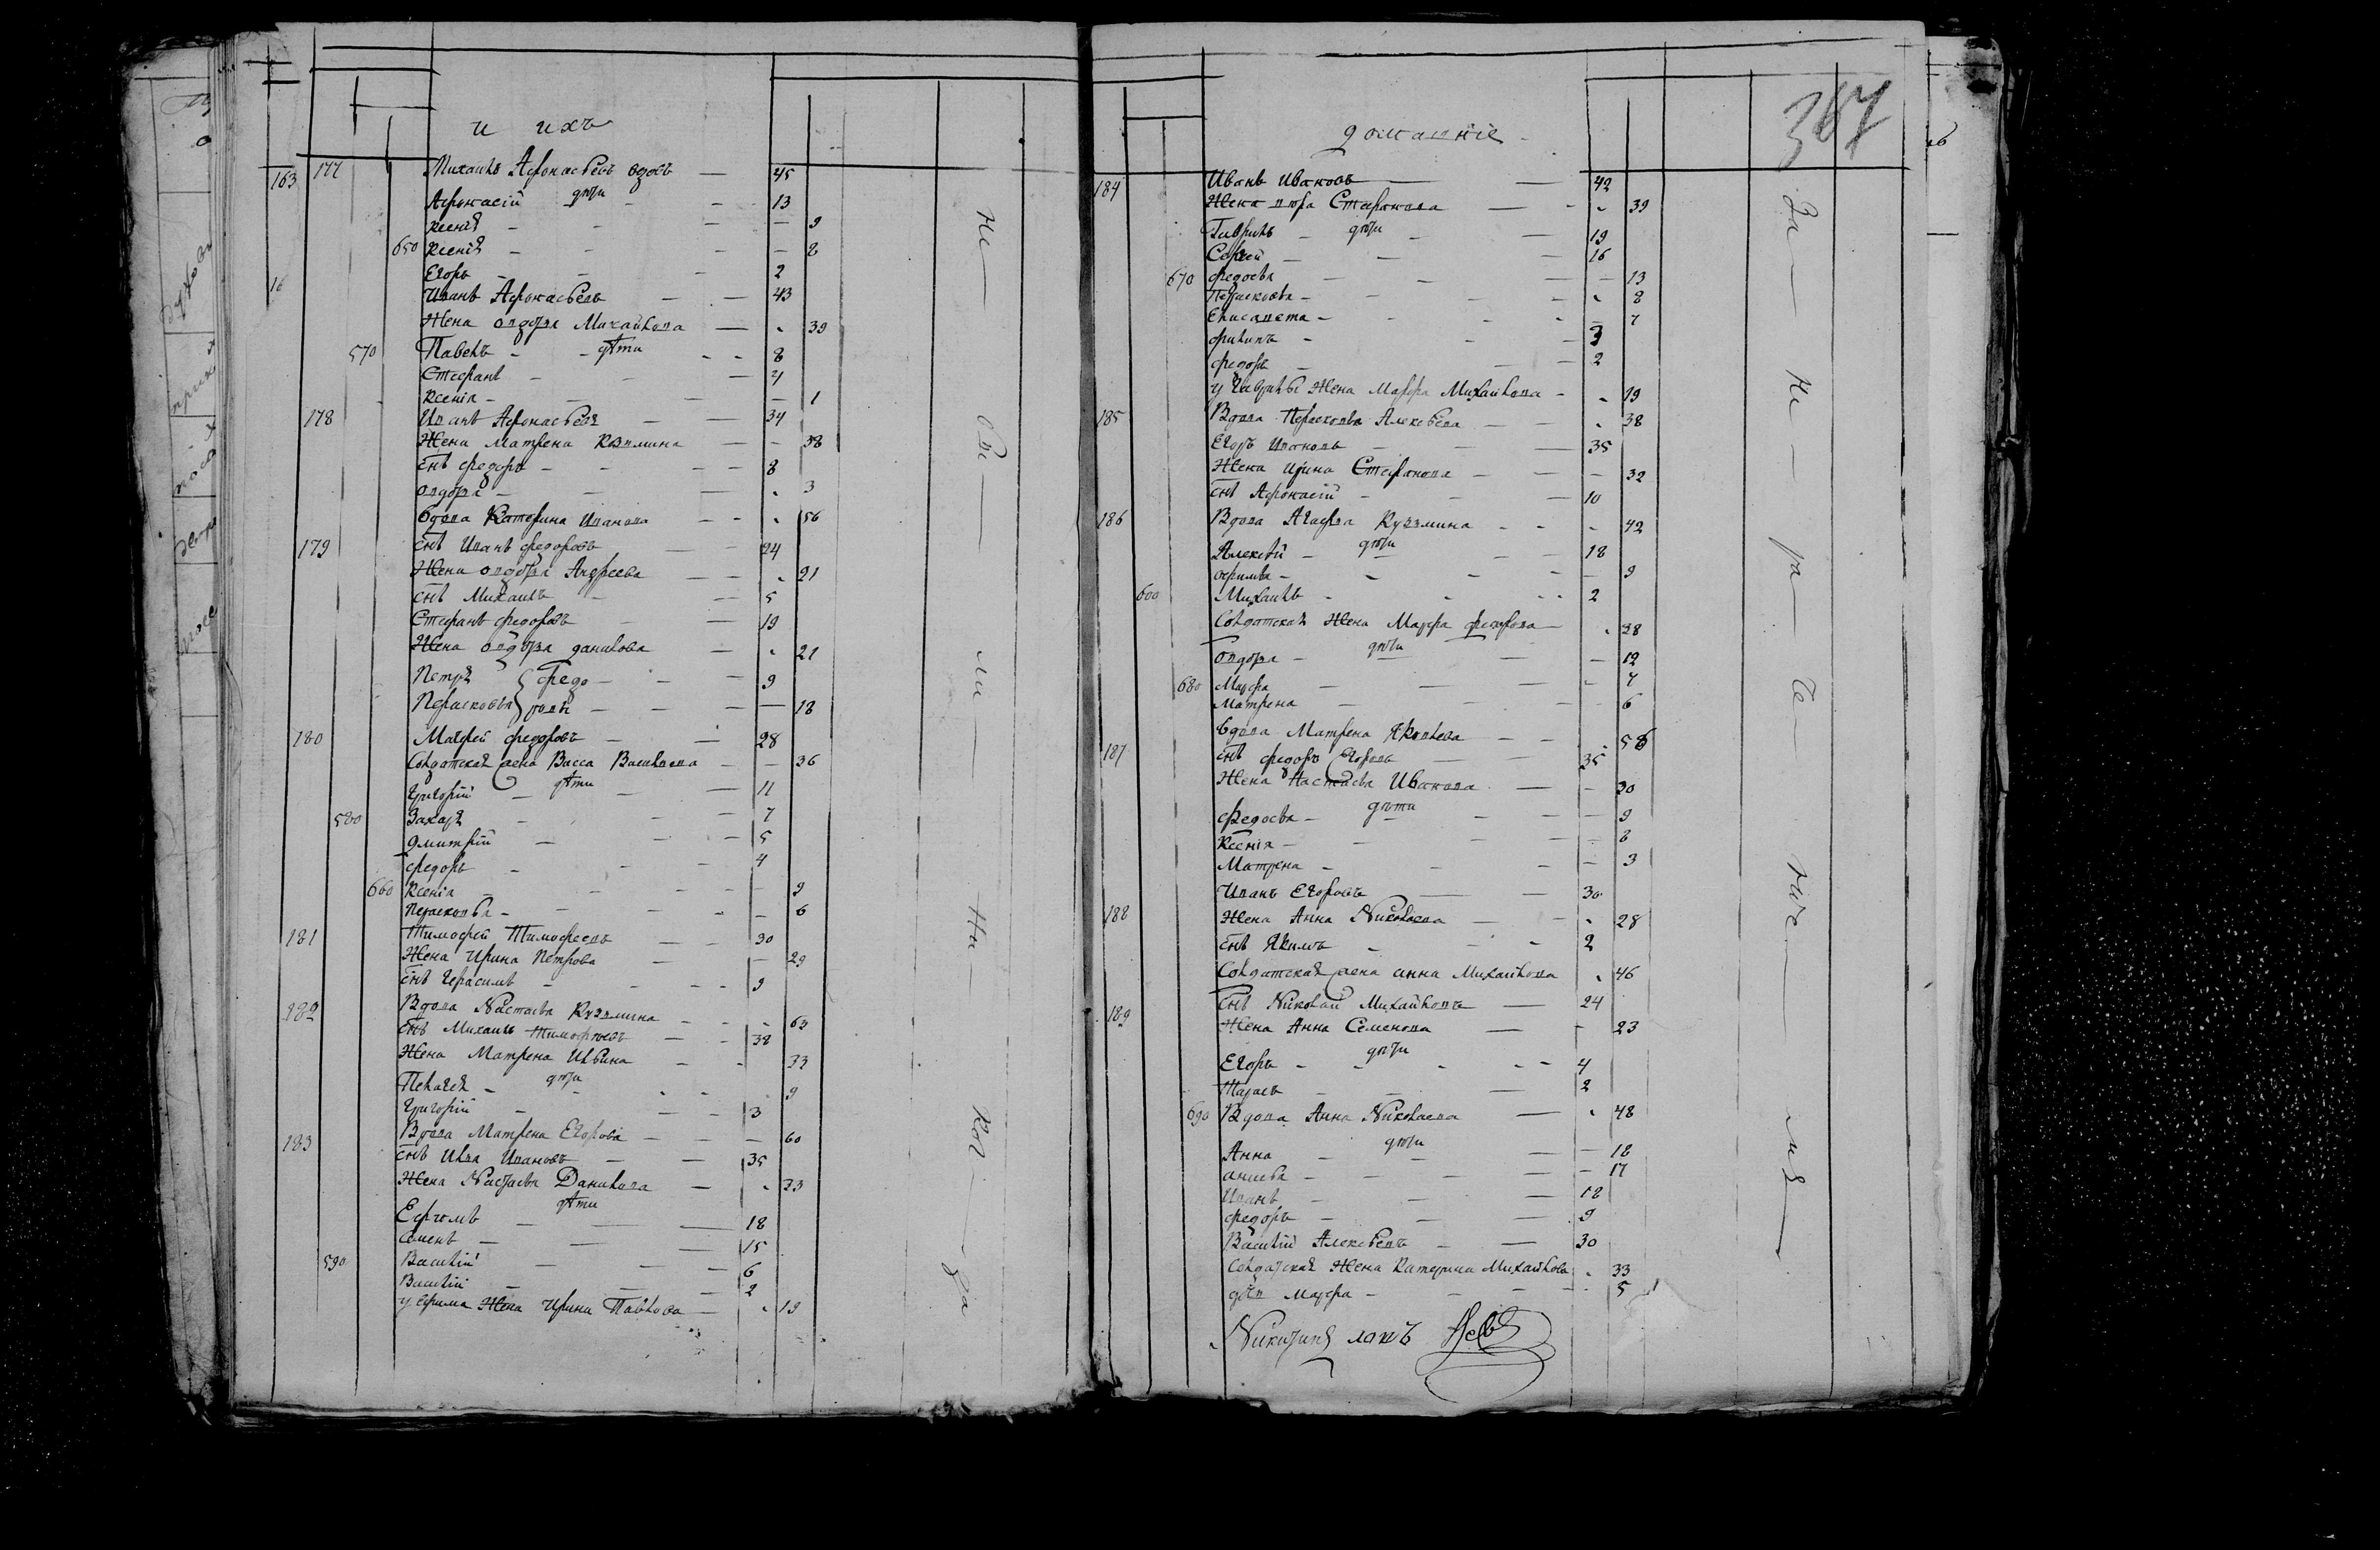 и ихъ
163 177 Михаилъ Афонасьевъ вдовъ — 45
дѣти
Афонасій — 13
Ксенія — 9
650 Ксенія — 8
Егоръ — 2
16 Иванъ Афонасьевъ — 43
Жена Авдотья Михайлова — 39
дѣти
570 Павелъ — 8
Стефанъ — 4
Ксенія — 1
178 Иванъ Афонасьевъ — 34
Жена Матрена Козмина — 38
снъ Федоръ — 8
Овдотья — 3
Вдова Катерина Иванова — 56
179 снъ Иванъ Федоровъ — 24
Жена Овдотья Андреева — 21
снъ Михаилъ — 5
Стефанъ Федоровъ — 19
Жена Овдотья Данилова — 21
Петръ } Федо — 9
Парасковья } ровы — 18
180 Матфей Федоровъ — 28
Солдатская жена Васса Васильева — 36
дѣти
Григорій — 11
580 Захаръ — 7
Дмитрій — 5
Федоръ — 4
660 Ксенія — 9
Парасковья — 6
181 Тимофей Тимофеевъ — 30
Жена Ирина Петрова — 29
снъ Герасимъ — 9
182 Вдова Настасья Кузмина — 63
снъ Михаилъ Тимофѣевъ — 38
Жена Матрена Ильина — 33
дѣти
Пелагея — 9
Григорій — 3
183 Вдова Матрена Егорова — 60
снъ Илья Ивановъ — 35
Жена Настасья Данилова — 33
дѣти
Ефимъ — 18
Семенъ — 15
590 Василій — 6
Василій — 2
у Ефима Жена Ирина Павлова — 19
Не — бы — ли — ни — ког — да
домашніе
367
184 Иванъ Ивановъ — 42
Жена Стефанова — 39
дѣти
Гаврилъ — 19
Сергей — 16
670 Федосья — 13
Парасковья — 8
Елисавета — 7
Филипъ — 3
Федоръ — 2
у Гаврилы Жена Марфа Михайлова — 19
185 Вдова Парасковья Алексѣева — 38
Егоръ Ивановъ — 35
Жена Ирина Стефанова — 32
снъ Афонасій — 10
186 Вдова Агафья Кузмина — 42
дѣти
Алексѣй — 18
Офимья — 9
600 Михаилъ — 2
Солдатская Жена Марфа Федорова — 38
дѣти
Овдотья — 12
680 Марфа — 7
Матрена — 6
Вдова Матрена Яковлева — 56
187 снъ Федоръ Егоровъ — 35
Жена Настасья Иванова — 30
дѣти
Федосья — 9
Ксенія — 8
Матрена — 3
Иванъ Егоровъ — 30
188 Жена Анна Николаева — 28
снъ Якимъ — 2
Солдатская жена Анна Михайлова — 46
189 снъ Николай Михайловъ — 24
Жена Анна Семенова — 23
дѣти
Егоръ — 4
Тарасъ — 2
690 Вдова Анна Николаева — 48
дѣти
Анна — 18
Анисья — 17
Иванъ — 12
Федоръ — 9
Василій Алексѣевъ — 30
Солдатская Жена Катерина Михайлова — 33
дочь Марфа — 5
За — не — ра — че — ніе — мъ